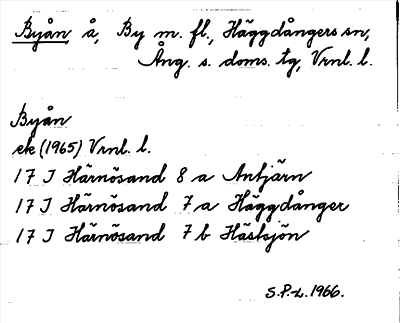 Byån å, By m. fl., Häggdångers sn,
Ång. s. doms. tg, Vrnl. l.
Byån
ek (1965) Vrnl. l.
17 J Härnösand 8 a Antjärn
17 J Härnösand 7 a Häggdånger
17 J Härnösand 7 b Hästsjön
S.P-L. 1966.